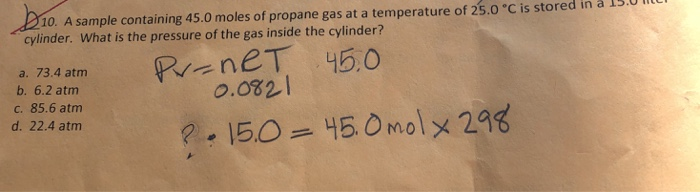 b 10. A sample containing 45.0 moles of propane gas at a temperature of 25.0 °C is stored in a 15.0
cylinder. What is the pressure of the gas inside the cylinder?
a. 73.4 atm
b. 6.2 atm
c. 85.6 atm
d. 22.4 atm
PV=nRT 45.0
0.0821
? • 15.0 = 45.0mol x 298